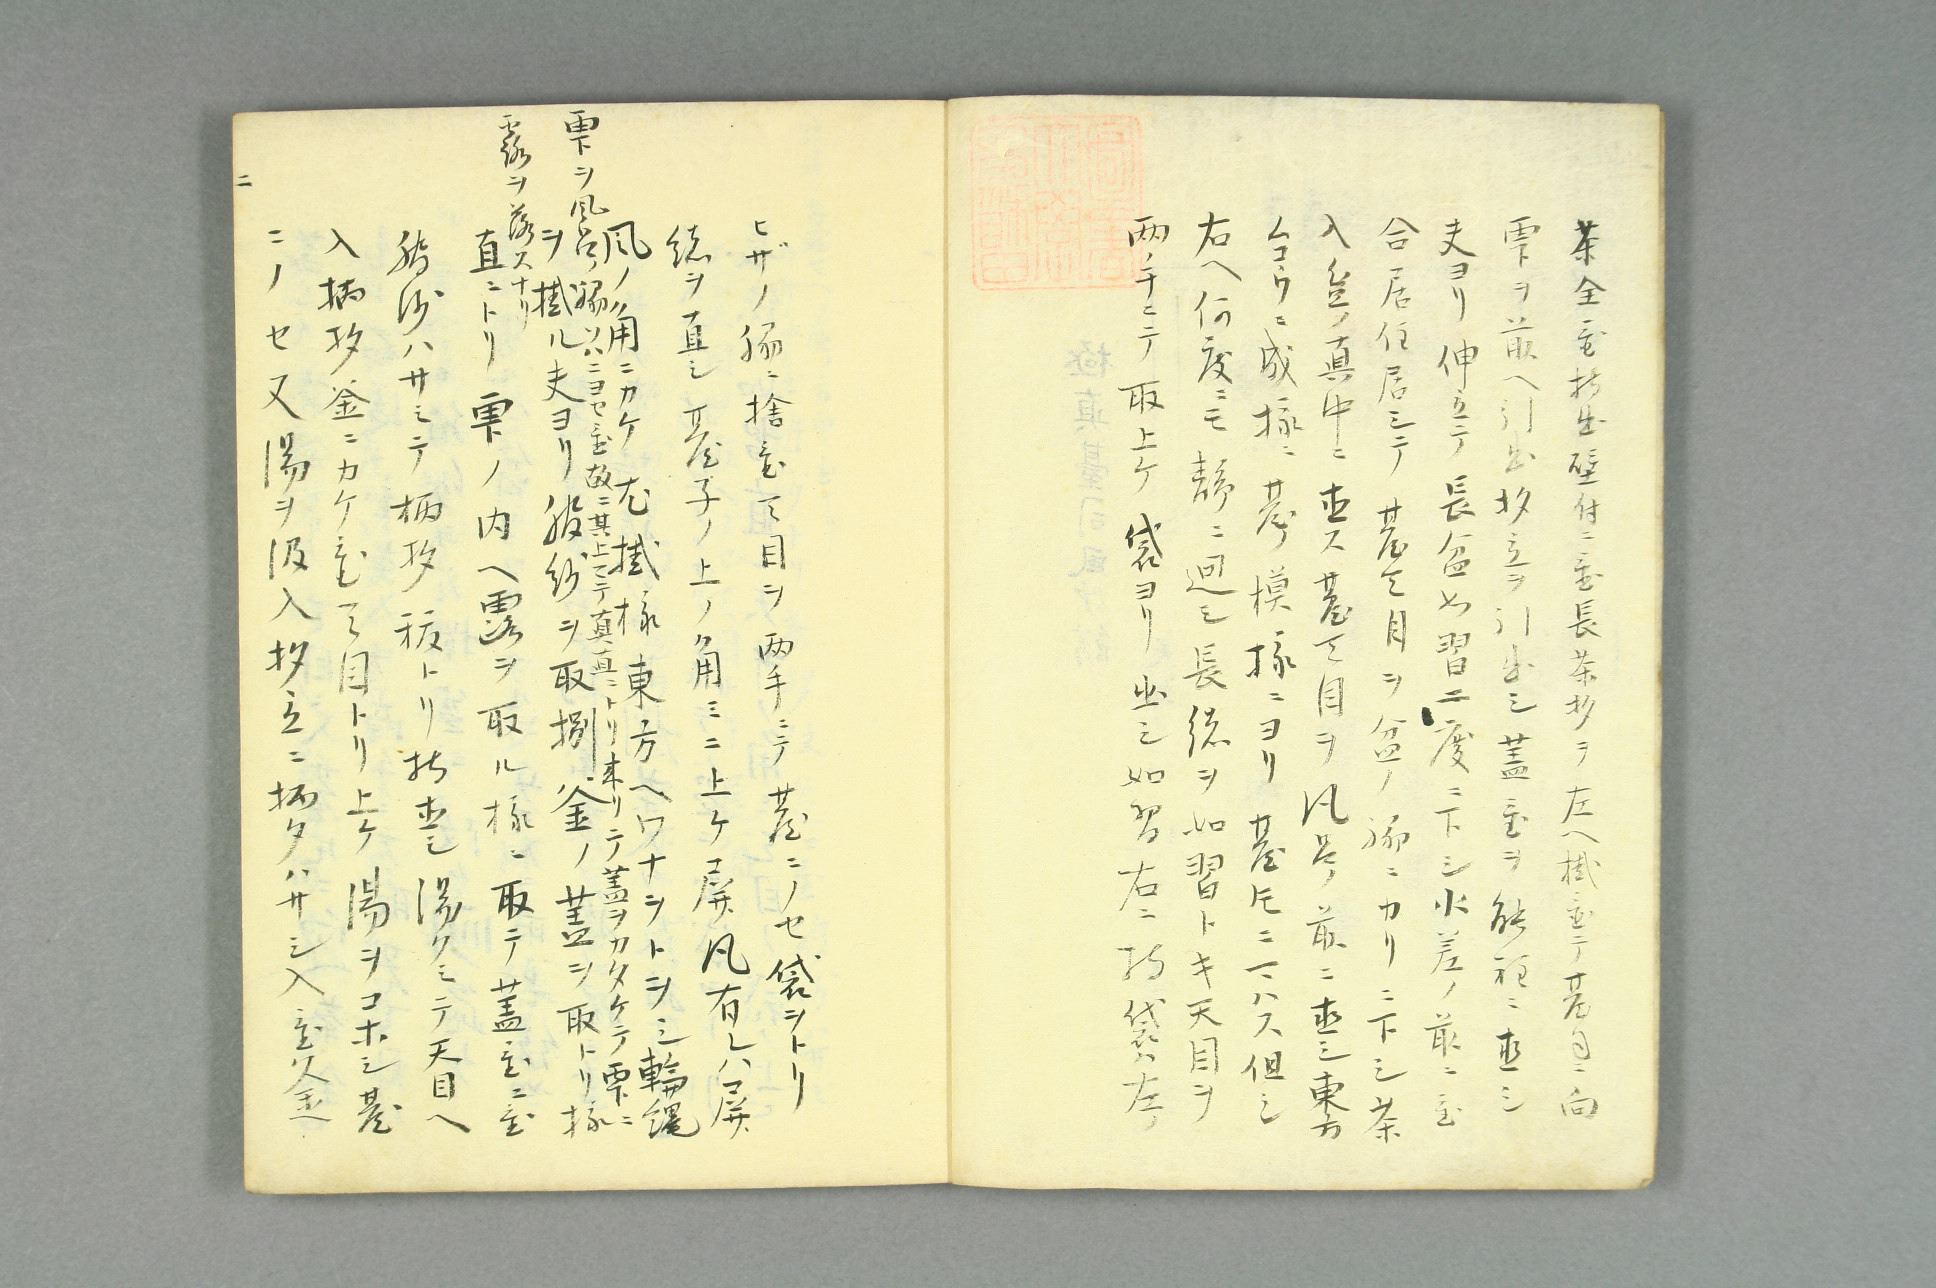 茶全置持出壁付ニ置長茶杓ヲ左ヘ掛置テ臺目ニ向
雫ヲ前ヘ引出杓立ヲ引出シ蓋置ヲ能程ニ直シ
夫ヨリ伸立テ長盆如習二度ニ下シ水差ノ前ニ置
合居住居シテ臺天目ヲ盆ノ脇ニカリニ下シ茶
入盆ノ真中ニ直ス臺天目ヲ風呂ノ前ニ直シ東方
ムコウニ成様ニ臺ノ模様ニヨリ臺
右ヘ何度ニモ静ニ廻シ長緒ヲ如習トキ天目ヲ
両ノ手ニテ取上ケ袋ヨリ出シ如習右ニ持袋ハ左ノ
ヒザノ脇ニ捨置天目ヲ両手ニテ臺ニノセ袋ヲトリ
緒ヲ直シ臺子ノ上ノ角ミニ上ケ屏風有レハ屏
風ノ角ニカケ尤掛様東方ヘワナヲトヲシ輪縄
ヲ掛ル夫ヨリ服紗ヲ取捌釜ノ蓋ヲ取トリ様
直ニトリ雫ノ内ヘ露ヲ取ル様ニ取テ蓋置ニ置
服沙ハサミテ柄杓扱トリ持直シ湯クミテ天目ヘ
入柄杓釜ニカケ置天目トリ上ケ湯ヲコホシ臺
ニノセ又湯ヲ汲入杓立ニ柄タハサシ入置
雫ヲ風呂ノ脇ツハニヨセ置故ニ其上ニテ真直ニトリ来リテ蓋ヲカタケテ雫ニ
露ヲ落スナリ
二